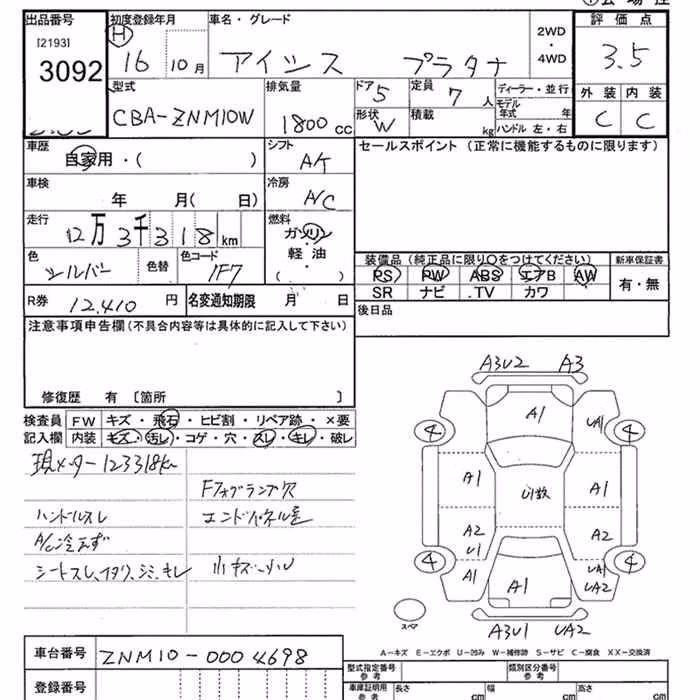 出品番号
[2193]
3092
初度登録年月
H 16 10月
車名・グレード
アイシス プラタナ
2WD
・
4WD
評価点
3.5
外装 内装
C C
型式
CBA-ZNM10W
排気量
1800cc
ドア 5
形状 W
定員 7人
積載 kg
ディーラー・並行
モデル年式 年
ハンドル 左・右
車歴
自家用・( )
シフト
AT
セールスポイント (正常に機能するものに限ります)
車検
年 月( 日)
冷房
A/C
走行
12万3千318km
燃料
ガソリン
軽油
( )
色
シルバー
色替
色コード
1F7
装備品 (純正品に限り○をつけてください)
新車保証書
PS PW ABS エアB AW
SR ナビ TV カワ
有・無
R券 12,410円
名変通知期限 月 日
後日品
注意事項申告欄 (不具合内容等は具体的に記入して下さい)
修復歴 有 〔箇所 〕
検査員
記入欄
FW キズ・飛石・ヒビ割・リペア跡・×要
内装 キズ・汚レ・コゲ・穴・スレ・キレ・破レ
現メーター123318km
Fフォグランプ欠
ハンドルスレ
エンドパネル歪
A/C冷えず
シートスレ、イタク、シミ、キレ
小キズ
A3U2 A3
A1
UA1
4 4
A1
U1数
A1
A2
U1
A2
4 4
A1
A1
UA1
UA2
スペア
A3U1 UA2
A-キズ E-エクボ U-凹み W-補修跡 S-サビ C-腐食 XX-交換済
車台番号
ZNM10-0004698
登録番号
型式指定番号
参考
類別区分番号
参考
車庫証明用
参考
長さ cm
幅 cm
高さ cm